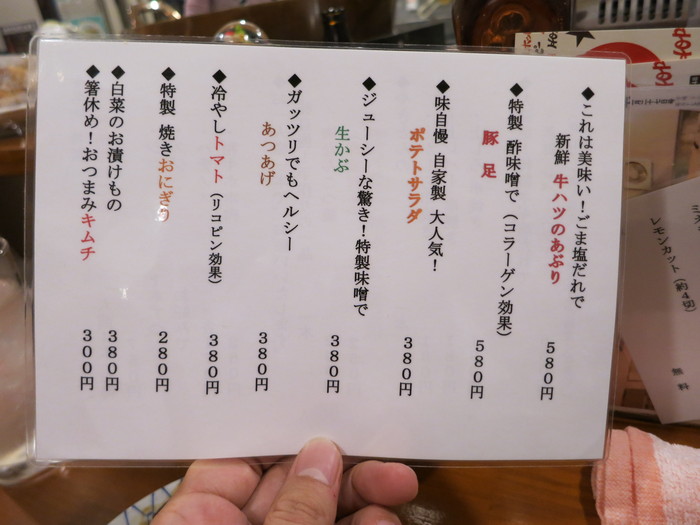 ◆これは美味い！ごま塩だれで
新鮮 牛ハツのあぶり
５８０円
◆特製 酢味噌で（コラーゲン効果）
豚足
５８０円
◆味自慢 自家製 大人気！
ポテトサラダ
３８０円
◆ジューシーな驚き！特製味噌で
生かぶ
３８０円
◆ガッツリでもヘルシー
あつあげ
３８０円
◆冷やしトマト（リコピン効果）
３８０円
◆特製 焼きおにぎり
２８０円
◆白菜のお漬けもの
３８０円
◆箸休め！おつまみキムチ
３００円
レモンカット（約４切）
無料